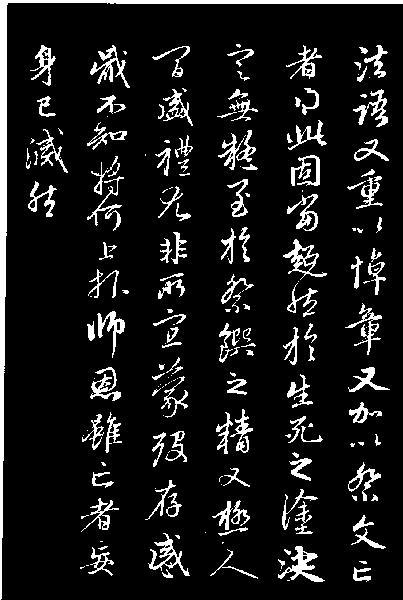 法語又重以悼章又加以祭文亡
者得此固當超然於生死之塗決
定無疑至於祭饌之精又極人
間盛禮尤非所宜蒙歿存感
戴不知將何上報師恩雖亡者妄
身已滅然